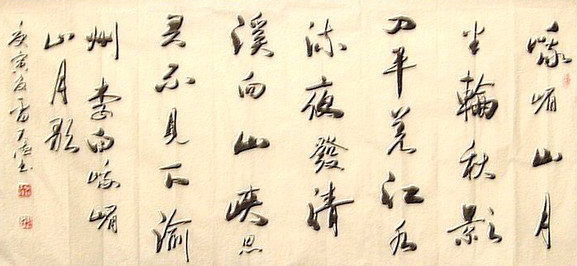 峨嵋山月
半輪秋影
入平羌江水
流夜發清
溪向山峡思
君不見下渝
州 李白峨嵋
山月歌
庚寅